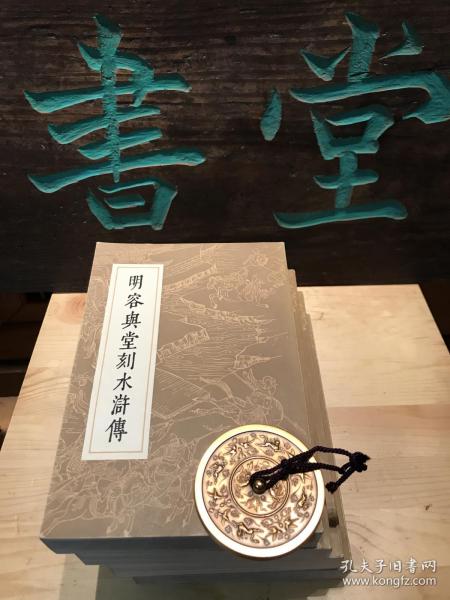 書堂
明容與堂刻水滸傳
孔夫子旧书网
www.kongfz.com